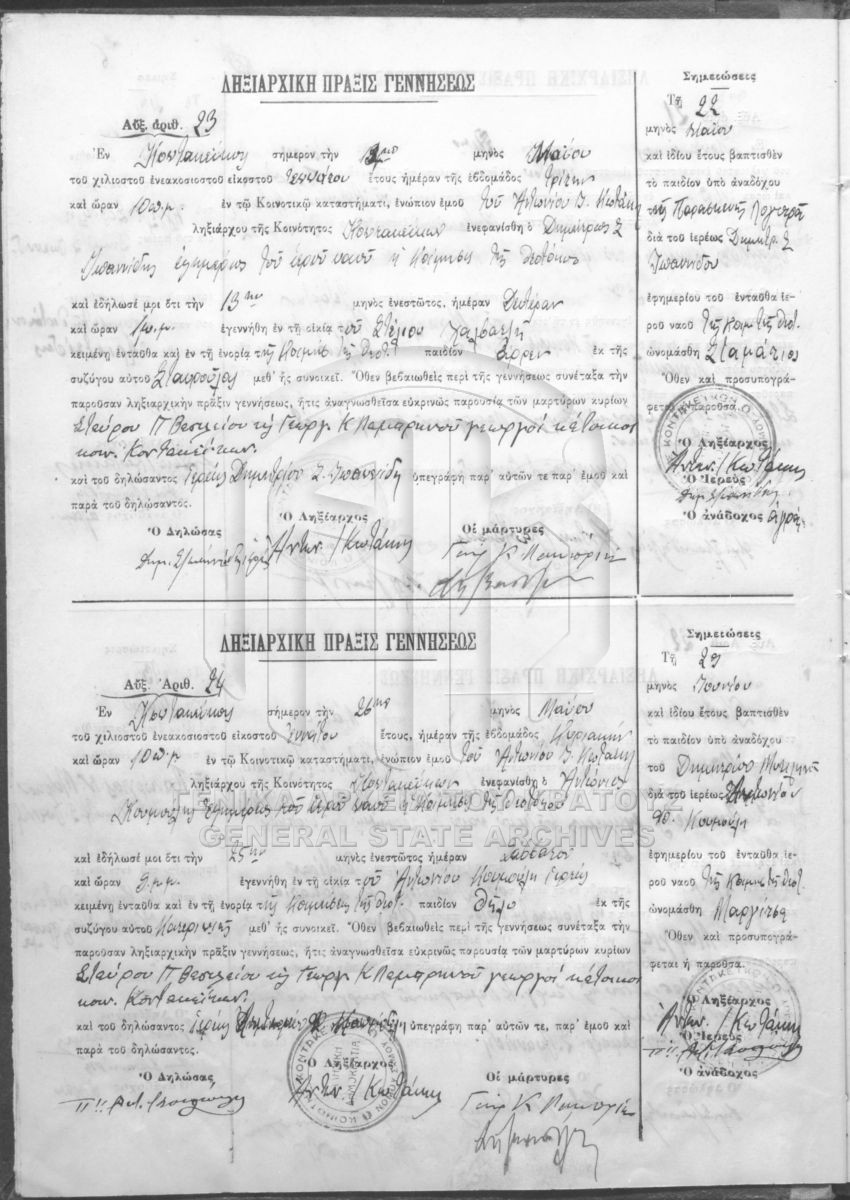 ΛΗΞΙΑΡΧΙΚΗ ΠΡΑΞΙΣ ΓΕΝΝΗΣΕΩΣ
Αὔξ. ἀριθ. 23
Ἐν Κοντακέικοις σήμερον τὴν μηνὸς Μαΐου
τοῦ χιλιοστοῦ ἐνεακοσιοστοῦ εἰκοστοῦ ἐννάτου ἔτους ἡμέραν τῆς ἑβδομάδος Τρίτην
καὶ ὥραν 10 π.μ. ἐν τῷ Κοινοτικῷ καταστήματι, ἐνώπιον ἐμοῦ τοῦ Ἀντωνίου Κωτάκη
ληξιάρχου τῆς Κοινότητος Κοντακέικων ἐνεφανίσθη ὁ Δημήτριος Σ
Ἰωαννίδης ἐφημέριος τοῦ ἱεροῦ ναοῦ ἡ Κοίμησις τῆς Θεοτόκου
καὶ ἐδήλωσέ μοι ὅτι τὴν 13ην μηνὸς ἐνεστῶτος, ἡμέραν Δευτέραν
καὶ ὥραν 1 μ.μ. ἐγεννήθη ἐν τῇ οἰκίᾳ τοῦ Στέλιου
κειμένῃ ἐνταῦθα καὶ ἐν τῇ ἐνορίᾳ τῆς Κοιμήσ. τῆς Θεοτ. παιδίον ἄρρεν ἐκ τῆς
συζύγου αὐτοῦ Σταυρούλας μεθ' ἧς συνοικεῖ. Ὅθεν βεβαιωθεὶς περὶ τῆς γεννήσεως συνέταξα τὴν
παροῦσαν ληξιαρχικὴν πρᾶξιν γεννήσεως, ἥτις ἀναγνωσθεῖσα εὐκρινῶς παρουσίᾳ τῶν μαρτύρων κυρίων
Σταύρου Π Βασιλείου κ Γεωργ. Κ Λαμπρινοῦ γεωργοὶ κάτοικοι
κοιν. Κοντακέικων.
καὶ τοῦ δηλώσαντος Ἱερέως Δημητρίου Σ. Ἰωαννίδη ὑπεγράφη παρ' αὐτῶν τε παρ' ἐμοῦ καὶ
παρὰ τοῦ δηλώσαντος.
Ὁ Δηλώσας Ὁ Ληξίαρχος Οἱ μάρτυρες
Ἀντων. Κωτάκης
Σημειώσεις
Τῇ 22
μηνὸς Μαΐου
καὶ ἰδίου ἔτους βαπτισθὲν
τὸ παιδίον ὑπὸ ἀναδόχου
τῆς Παρασκευῆς
διὰ τοῦ ἱερέως Δημητρ. Σ
Ἰωαννίδου
ἐφημερίου τοῦ ἐνταῦθα ἱε-
ροῦ ναοῦ τῆς Κοιμ. τῆς Θεοτ.
ὠνομάσθη Σταμάτιος
Ὅθεν καὶ προσυπογρά-
φεται ἡ παροῦσα.
Ὁ Ληξίαρχος
Ἀντων. Κωτάκης
Ὁ Ἱερεὺς
Ὁ ἀνάδοχος
ΛΗΞΙΑΡΧΙΚΗ ΠΡΑΞΙΣ ΓΕΝΝΗΣΕΩΣ
Αὔξ. Ἀριθ. 24
Ἐν Κοντακέικοις σήμερον τὴν 26ην μηνὸς Μαΐου
τοῦ χιλιοστοῦ ἐνεακοσιοστοῦ εἰκοστοῦ ἐννάτου ἔτους, ἡμέραν τῆς ἑβδομάδος Κυριακὴν
καὶ ὥραν 10 π.μ ἐν τῷ Κοινοτικῷ καταστήματι, ἐνώπιον ἐμοῦ τοῦ Ἀντωνίου Κωτάκη
ληξιάρχου τῆς Κοινότητος Κοντακέικων ἐνεφανίσθη ὁ Ἀντώνιος
ἐφημέριος τοῦ ἱεροῦ ναοῦ ἡ Κοίμησις τῆς Θεοτόκου
ΓΕΝΙΚΑ ΑΡΧΕΙΑ ΤΟΥ ΚΡΑΤΟΥΣ
GENERAL STATE ARCHIVES
καὶ ἐδήλωσέ μοι ὅτι τὴν 25ην μηνὸς ἐνεστῶτος ἡμέραν Σάββατον
καὶ ὥραν 9 μ.μ. ἐγεννήθη ἐν τῇ οἰκίᾳ τοῦ Ἀντωνίου Ἱερέως
κειμένῃ ἐνταῦθα καὶ ἐν τῇ ἐνορίᾳ τῆς Κοιμήσεως τῆς Θεοτ. παιδίον θῆλυ ἐκ τῆς
συζύγου αὐτοῦ Κατερίνης μεθ' ἧς συνοικεῖ. Ὅθεν βεβαιωθεὶς περὶ τῆς γεννήσεως συνέταξα τὴν
παροῦσαν ληξιαρχικὴν πρᾶξιν γεννήσεως, ἥτις ἀναγνωσθεῖσα εὐκρινῶς παρουσίᾳ τῶν μαρτύρων κυρίων
Σταύρου Π. Βασιλείου κ Γεωργ. Κ Λαμπρινοῦ γεωργοὶ κάτοικοι
κοιν. Κοντακέικων.
καὶ τοῦ δηλώσαντος Ἱερέως ὑπεγράφη παρ' αὐτῶν τε, παρ' ἐμοῦ καὶ
παρὰ τοῦ δηλώσαντος.
Ὁ Δηλώσας Ὁ Ληξίαρχος Οἱ μάρτυρες
Ἀντων. Κωτάκης
Σημειώσεις
Τῇ 29
μηνὸς Ἰουνίου
καὶ ἰδίου ἔτους βαπτισθὲν
τὸ παιδίον ὑπὸ ἀναδόχου
τοῦ Δημητρίου
διὰ τοῦ ἱερέως Ἀντωνίου
ἐφημερίου τοῦ ἐνταῦθα ἱε-
ροῦ ναοῦ τῆς Κοιμ. τῆς Θεοτ.
ὠνομάσθη Μαργίτσα
Ὅθεν καὶ προσυπογρά-
φεται ἡ παροῦσα.
Ὁ Ληξίαρχος
Ἀντων. Κωτάκης
Ὁ Ἱερεὺς
Ὁ ἀνάδοχος